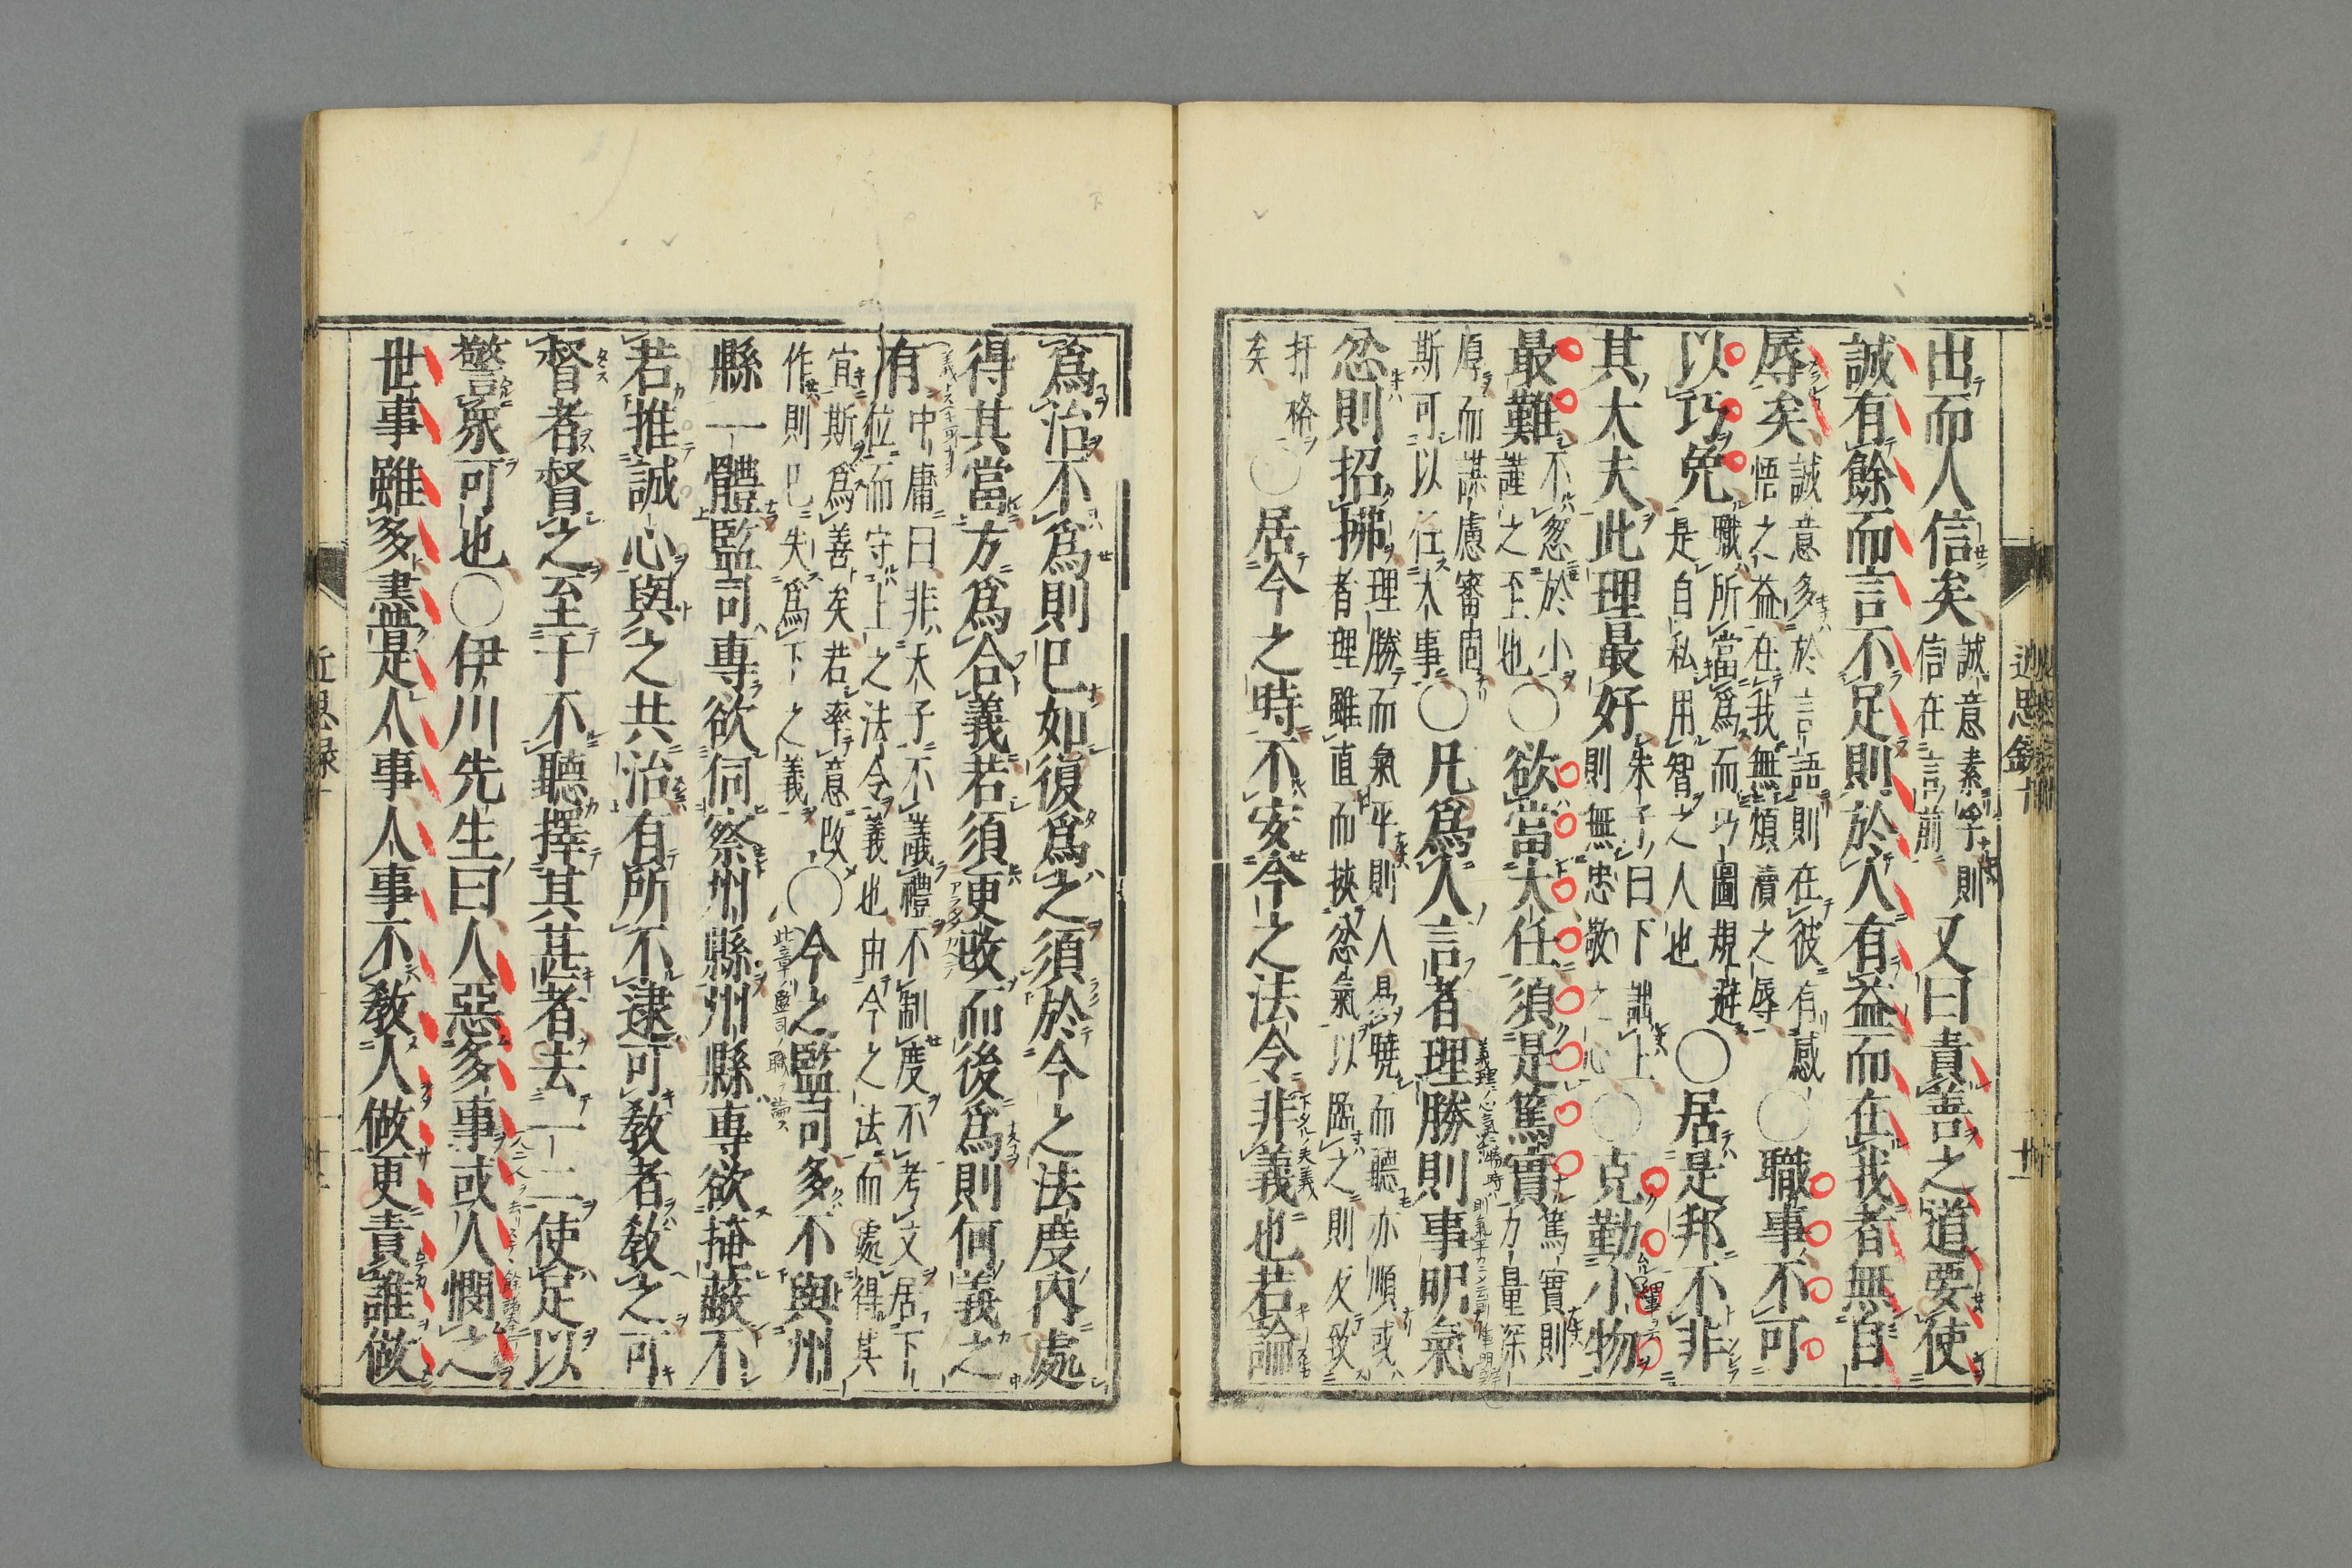 出而人信矣誠意素孚則信在言前又曰責善之道要使
誠有餘而言不足則於人有益而在我者無自
辱矣誠意多於言語則在彼有感悟之益在我無煩瀆之辱〇職事不可
以巧免職所當爲而巧圖規避是自私用智之人也〇居是邦不非
其大夫此理最好朱子曰下訕上則無忠敬之心〇克勤小物
最難不忽於小謹之至也〇欲當大任須是篤實篤實則力量深
厚而謀慮審固斯可以任大事〇凡爲人言者理勝則事明氣
忿則招拂理勝而氣平則人易曉而聽亦順或者理雖直而挾忿氣以臨之則反致
扞格矣〇居今之時不安今之法令非義也若論
爲治不爲則已如復爲之須於今之法度内處
得其當方爲合義若須更改而後爲則何義之
有中庸曰非天子不議禮不制度不考文居下位而守上之法令義也由今之法而處得其
宜斯爲善矣若率意改作則已失爲下之義〇今之監司多不與州
縣一體監司專欲伺察州縣州縣專欲掩蔽不
若推誠心與之共治有所不逮可教者教之可
督者督之至于不聽擇其甚者去一二使足以
警衆可也〇伊川先生曰人惡多事或人憫之
世事雖多盡是人事人事不教人做更責誰做
近思録十